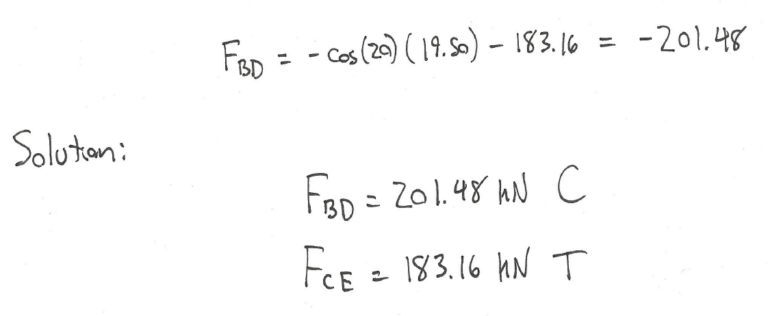 F_BD = - cos(20) (19.50) - 183.16 = -201.48
Solution:
F_BD = 201.48 kN C
F_CE = 183.16 kN T